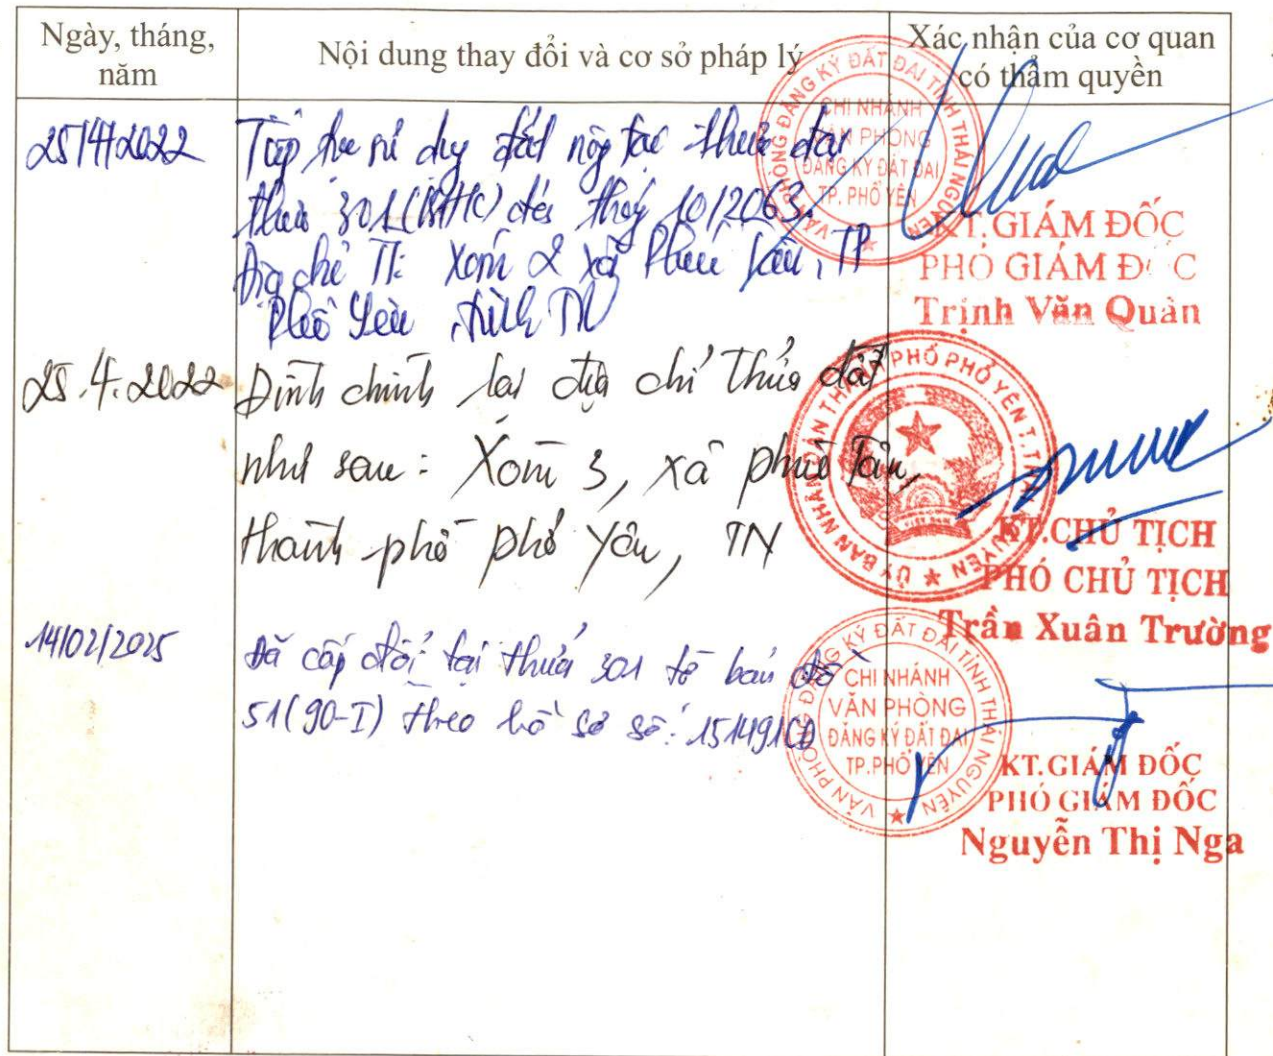 Ngày, tháng, năm
Nội dung thay đổi và cơ sở pháp lý
Xác nhận của cơ quan có thẩm quyền
25/4/2022
Tiếp tục sử dụng đất nông tại thửa đất
thửa 301 (BHK) đến tháng 10/2063.
Địa chỉ TĐ: Xóm 2 xã Phúc Tân, TP
Phổ Yên tỉnh TN
VĂN PHÒNG ĐĂNG KÝ ĐẤT ĐAI TỈNH THÁI NGUYÊN
CHI NHÁNH
VĂN PHÒNG
ĐĂNG KÝ ĐẤT ĐAI
TP. PHỔ YÊN
KT.GIÁM ĐỐC
PHÓ GIÁM ĐỐC
Trịnh Văn Quản
25.4.2022
Đính chính lại địa chỉ thửa đất
như sau: Xóm 3, xã phúc Tân,
thành phố phổ Yên, TN
ỦY BAN NHÂN DÂN THÀNH PHỐ PHỔ YÊN T. THÁI NGUYÊN
KT.CHỦ TỊCH
PHÓ CHỦ TỊCH
Trần Xuân Trường
14/02/2025
Đã cấp đổi tại thửa 301 tờ bản đồ
51(90-I) theo hồ sơ số: 151491CĐ
VĂN PHÒNG ĐĂNG KÝ ĐẤT ĐAI TỈNH THÁI NGUYÊN
CHI NHÁNH
VĂN PHÒNG
ĐĂNG KÝ ĐẤT ĐAI
TP.PHỔ YÊN
KT.GIÁM ĐỐC
PHÓ GIÁM ĐỐC
Nguyễn Thị Nga